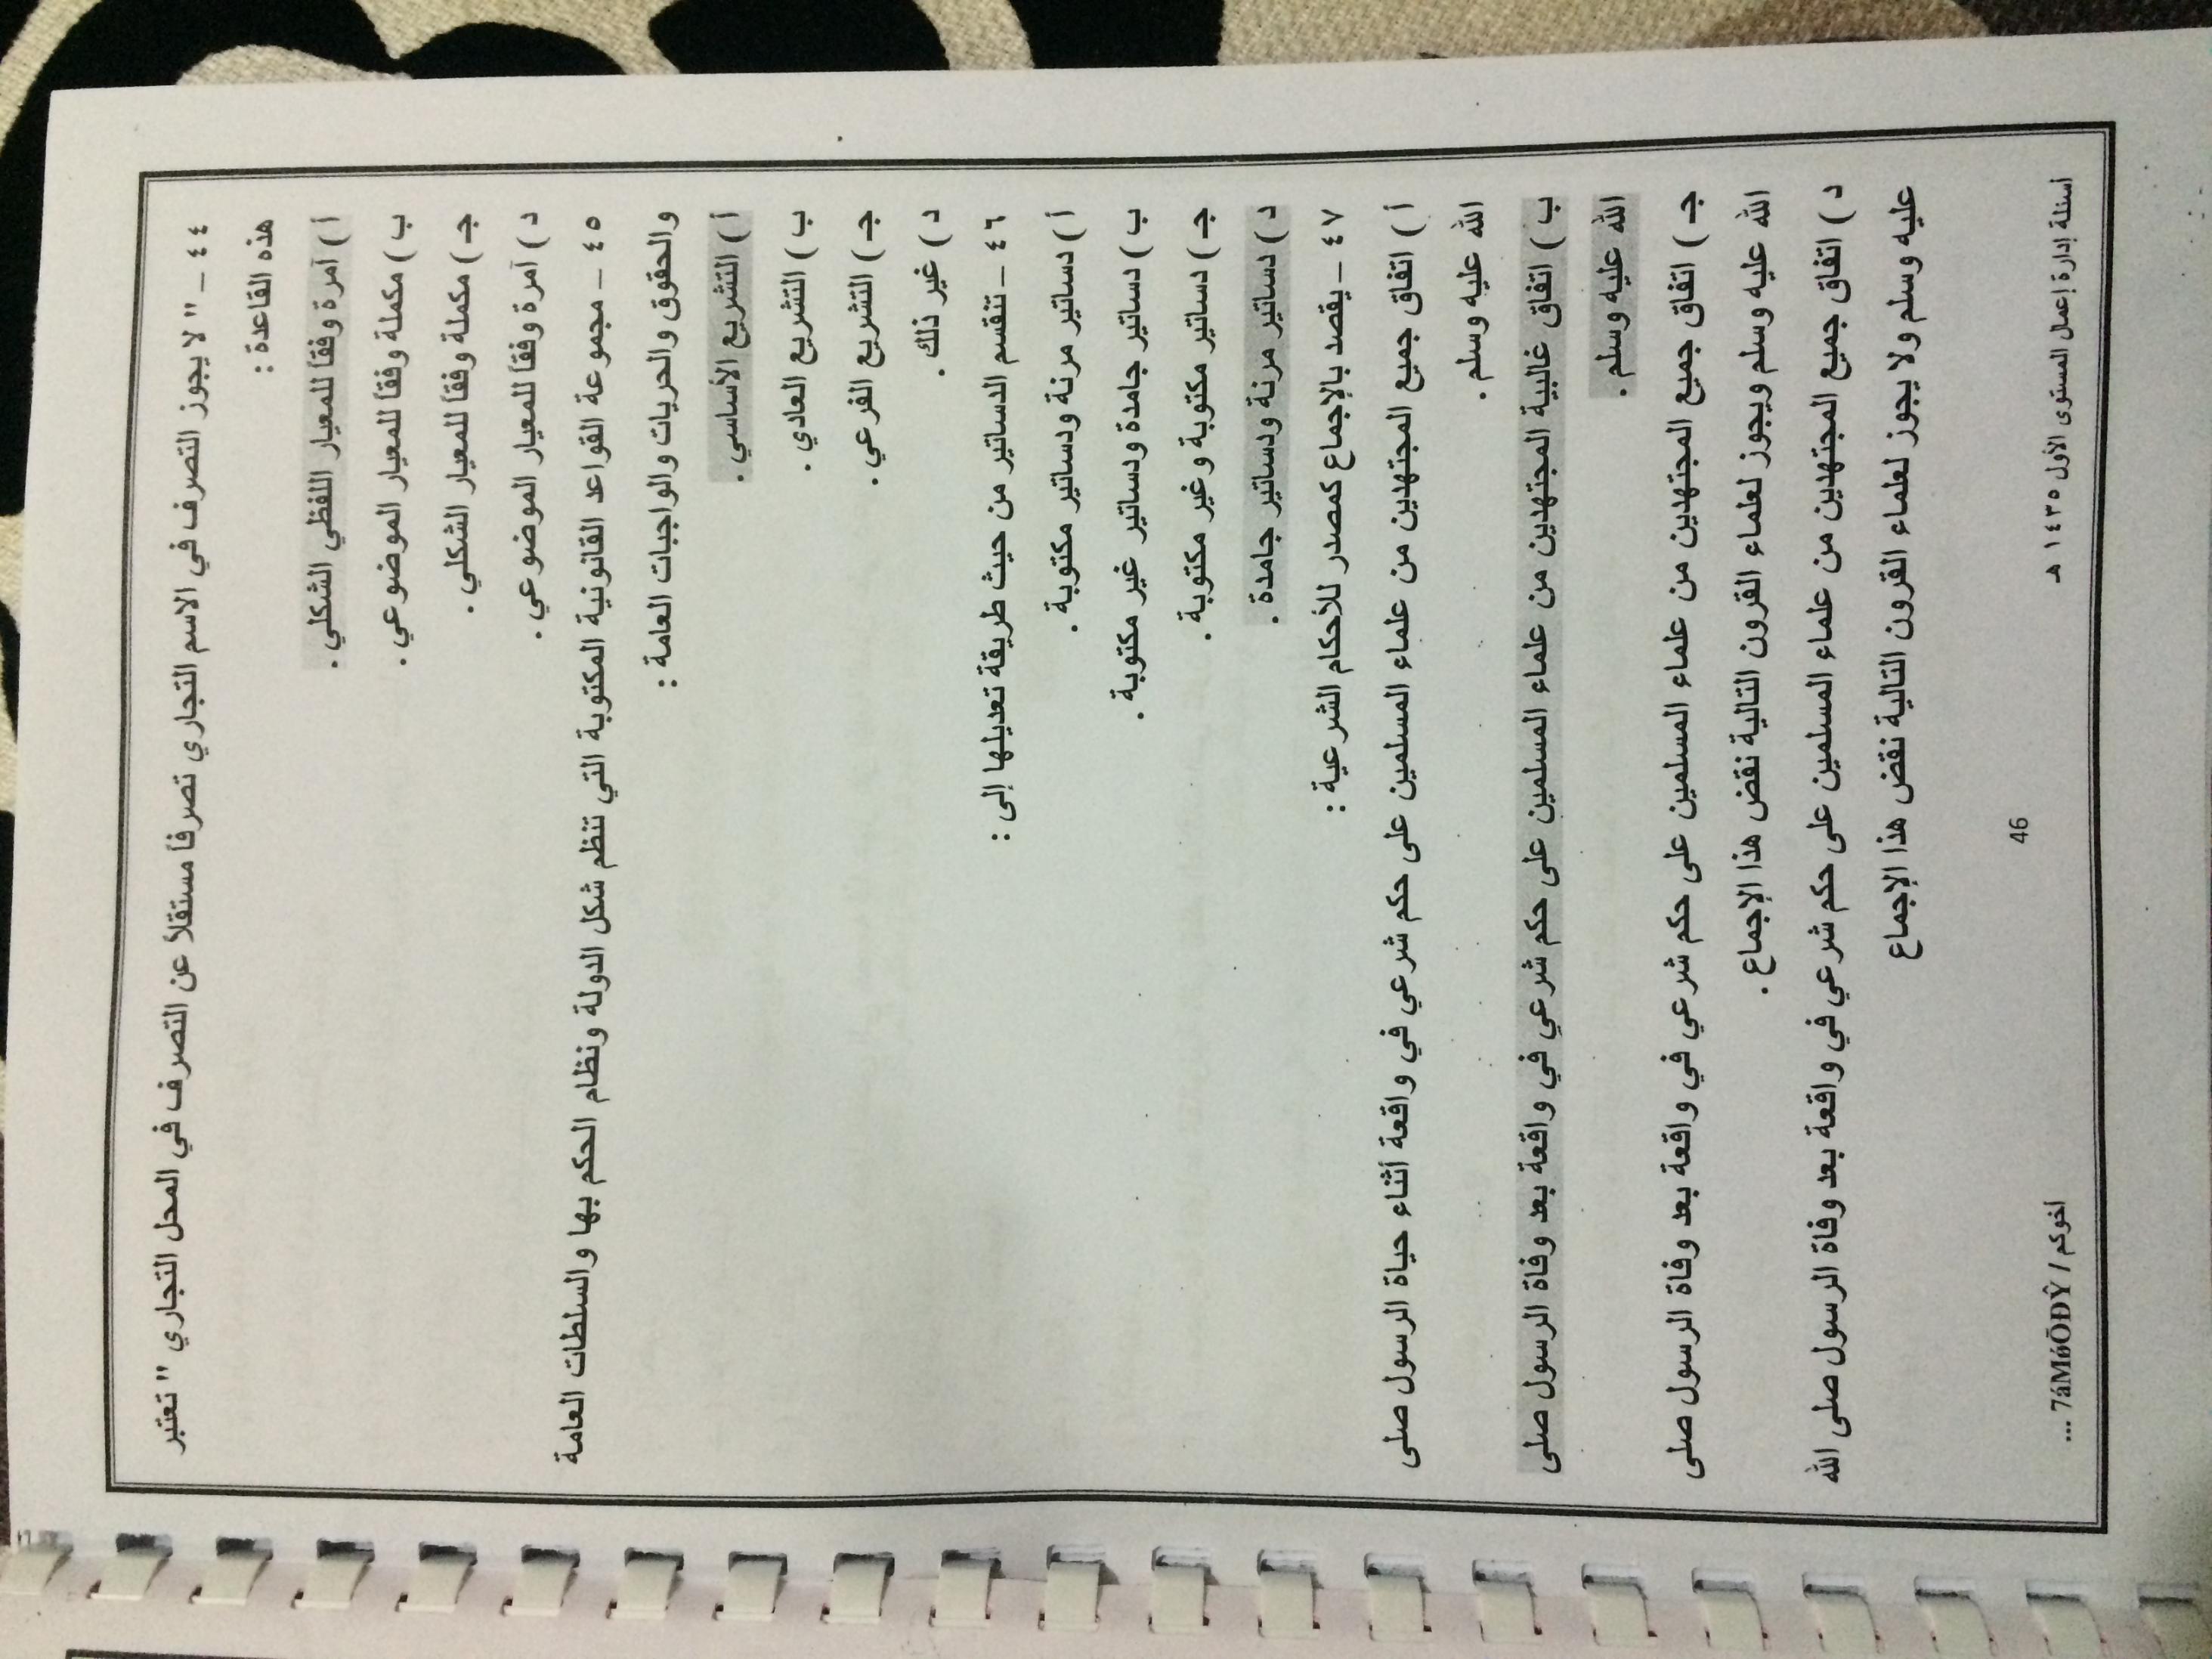 ٤٤ – " لا يجوز التصرف في الاسم التجاري تصرفاً مستقلاً عن التصرف في المحل التجاري " تعتبر
هذه القاعدة :
أ ) آمرة وفقاً للمعيار اللفظي الشكلي .
ب ) مكملة وفقاً للمعيار الموضوعي .
جـ ) مكملة وفقاً للمعيار الشكلي .
د ) آمرة وفقاً للمعيار الموضوعي .
٤٥ – مجموعة القواعد القانونية المكتوبة التي تنظم شكل الدولة ونظام الحكم بها والسلطات العامة
والحقوق والحريات والواجبات العامة :
أ ) التشريع الأساسي .
ب ) التشريع العادي .
جـ ) التشريع الفرعي .
د ) غير ذلك .
٤٦ – تنقسم الدساتير من حيث طريقة تعديلها إلى :
أ ) دساتير مرنة ودساتير مكتوبة .
ب ) دساتير جامدة ودساتير غير مكتوبة .
جـ ) دساتير مكتوبة وغير مكتوبة .
د ) دساتير مرنة ودساتير جامدة .
٤٧ – يقصد بالإجماع كمصدر للأحكام الشرعية :
أ ) اتفاق جميع المجتهدين من علماء المسلمين على حكم شرعي في واقعة أثناء حياة الرسول صلى
الله عليه وسلم .
ب ) اتفاق غالبية المجتهدين من علماء المسلمين على حكم شرعي في واقعة بعد وفاة الرسول صلى
الله عليه وسلم .
جـ ) اتفاق جميع المجتهدين من علماء المسلمين على حكم شرعي في واقعة بعد وفاة الرسول صلى
الله عليه وسلم ويجوز لعلماء القرون التالية نقض هذا الإجماع .
د ) اتفاق جميع المجتهدين من علماء المسلمين على حكم شرعي في واقعة بعد وفاة الرسول صلى الله
عليه وسلم ولا يجوز لعلماء القرون التالية نقض هذا الإجماع
46
أسئلة إدارة إعمال المستوى الأول ١٤٣٥ هـ
أخوكم / 7áMóŌĐŶ ...